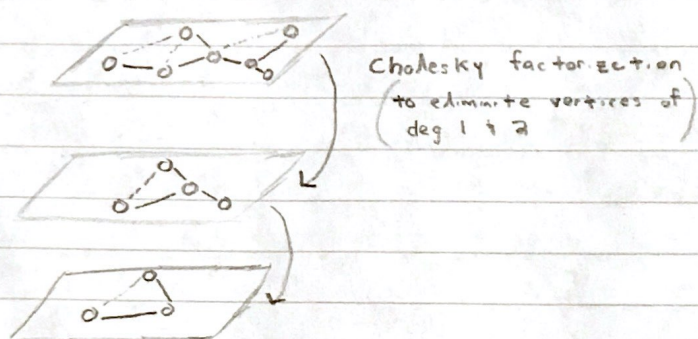 Cholesky factorization
(to eliminate vertices of
deg 1 & 2)